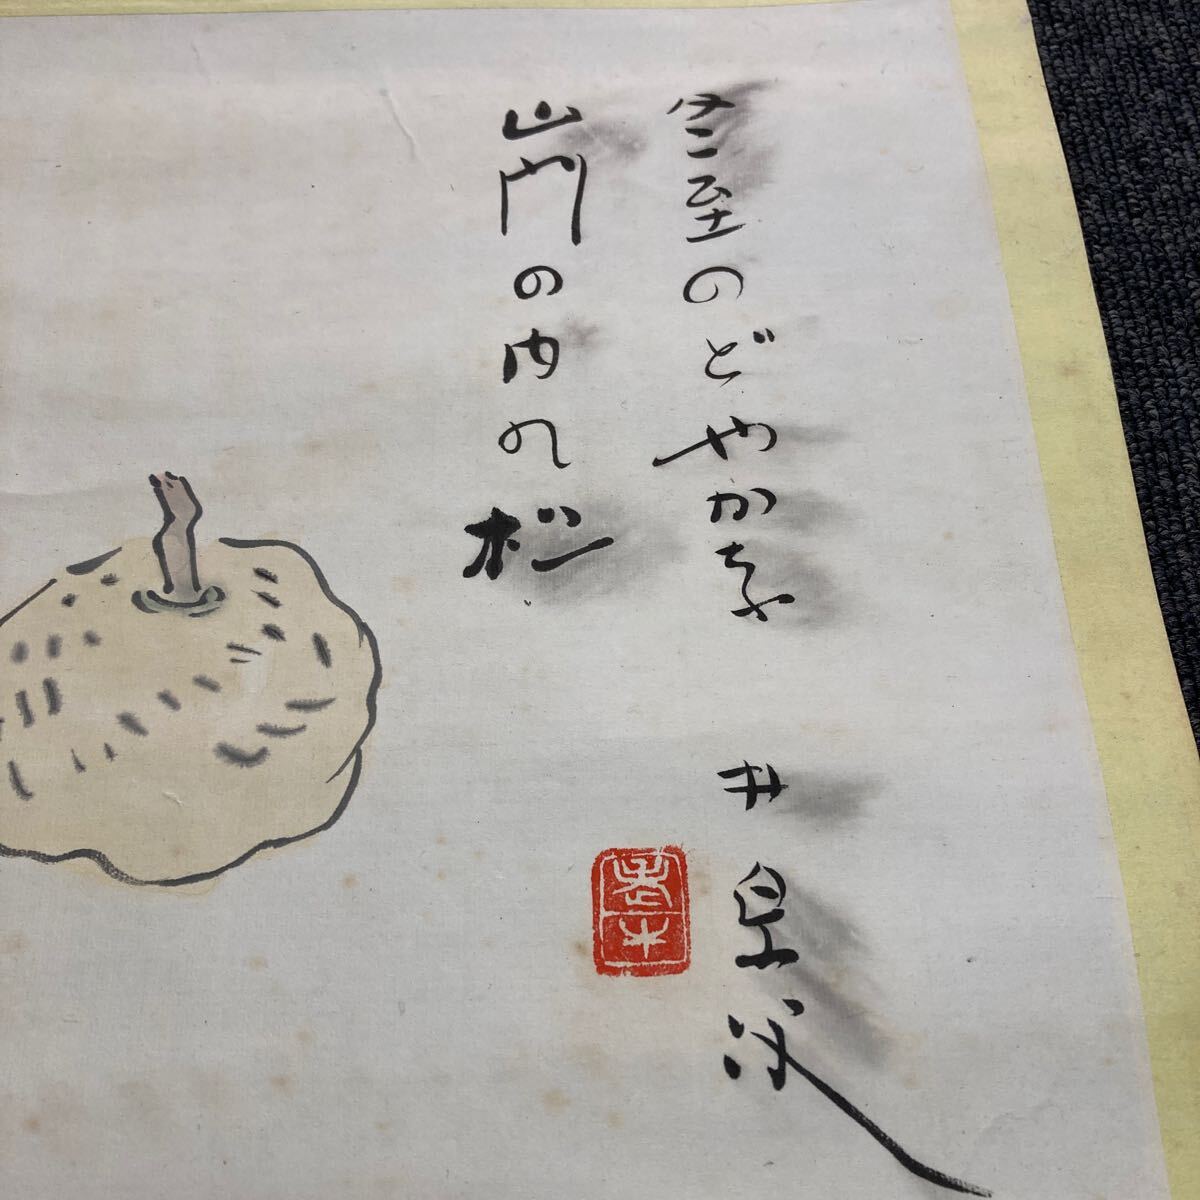 冬至のどやかな
山門の内の松
井泉水